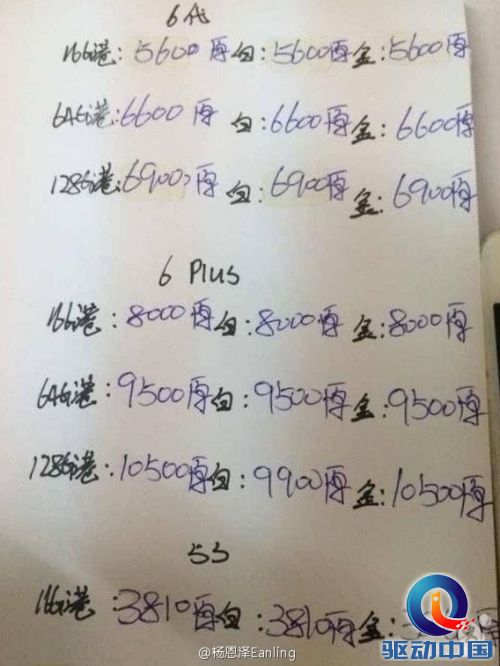 6代
16G港:5600原 白:5600原 金:5600原
64G港:6600原 白:6600原 金:6600原
128G港:6900原 白:6900原 金:6900原
6 Plus
16G港:8000原 白:8000原 金:8000原
64G港:9500原 白:9500原 金:9500原
128G港:10500原 白:9900原 金:10500原
5S
16G港:3810原 白:3810原 金:
驱动中国
@杨恩泽Eanling